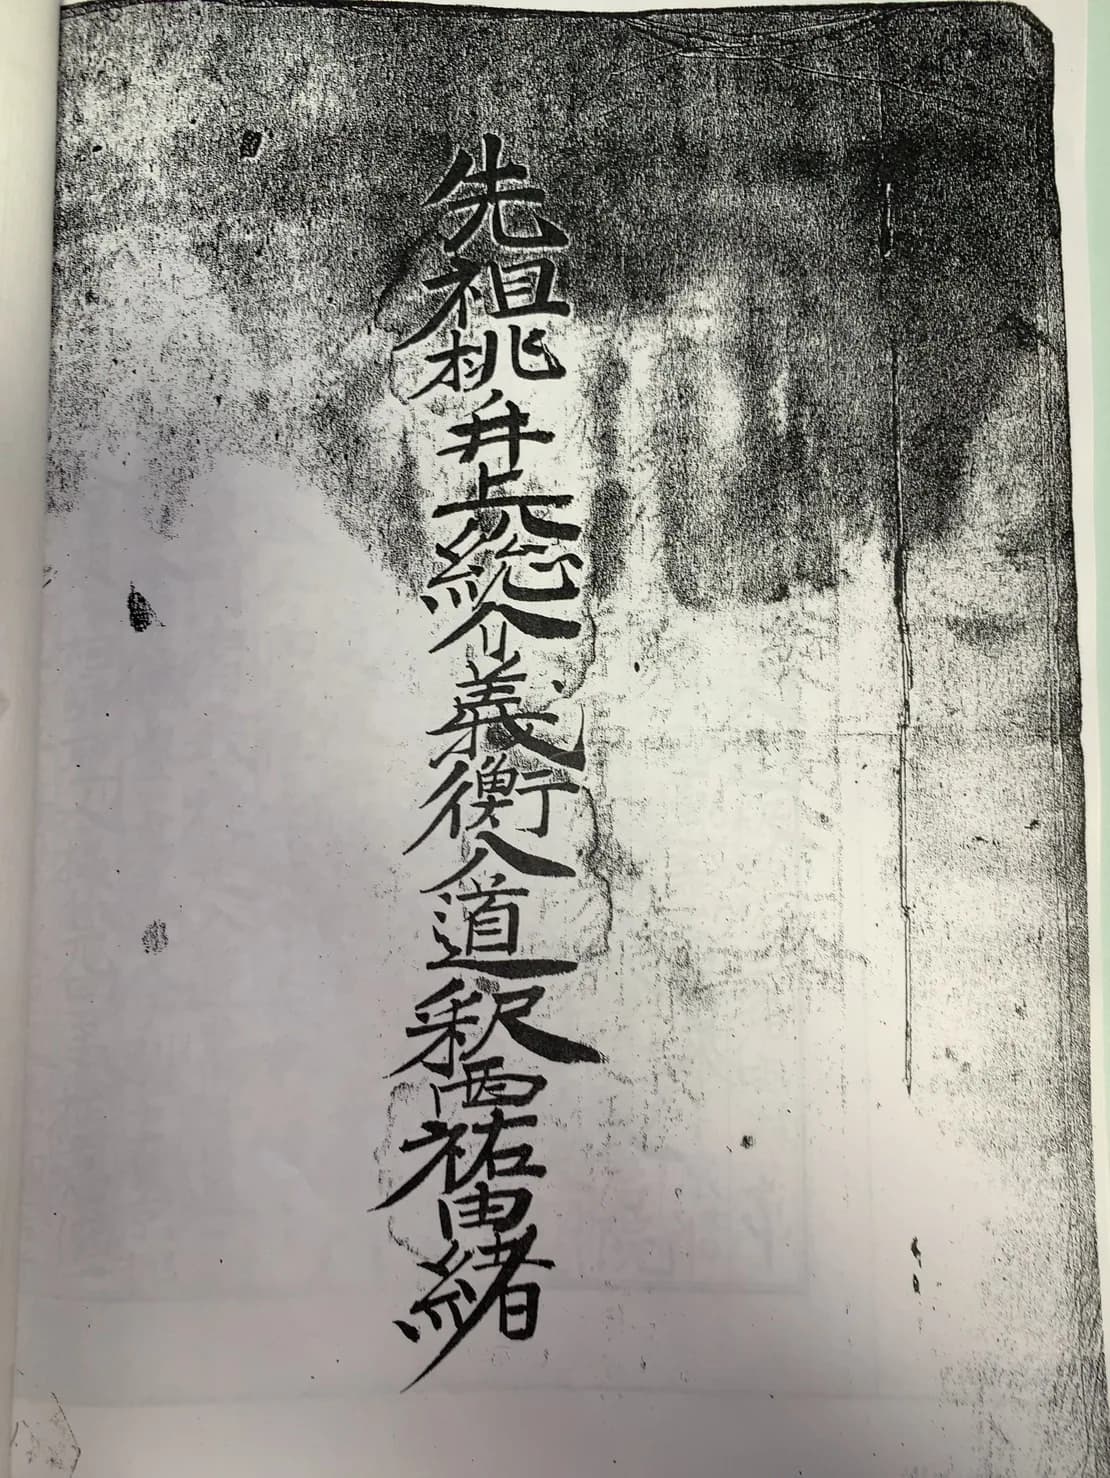 先祖桃井上総介義衡入道釈西祐由緒